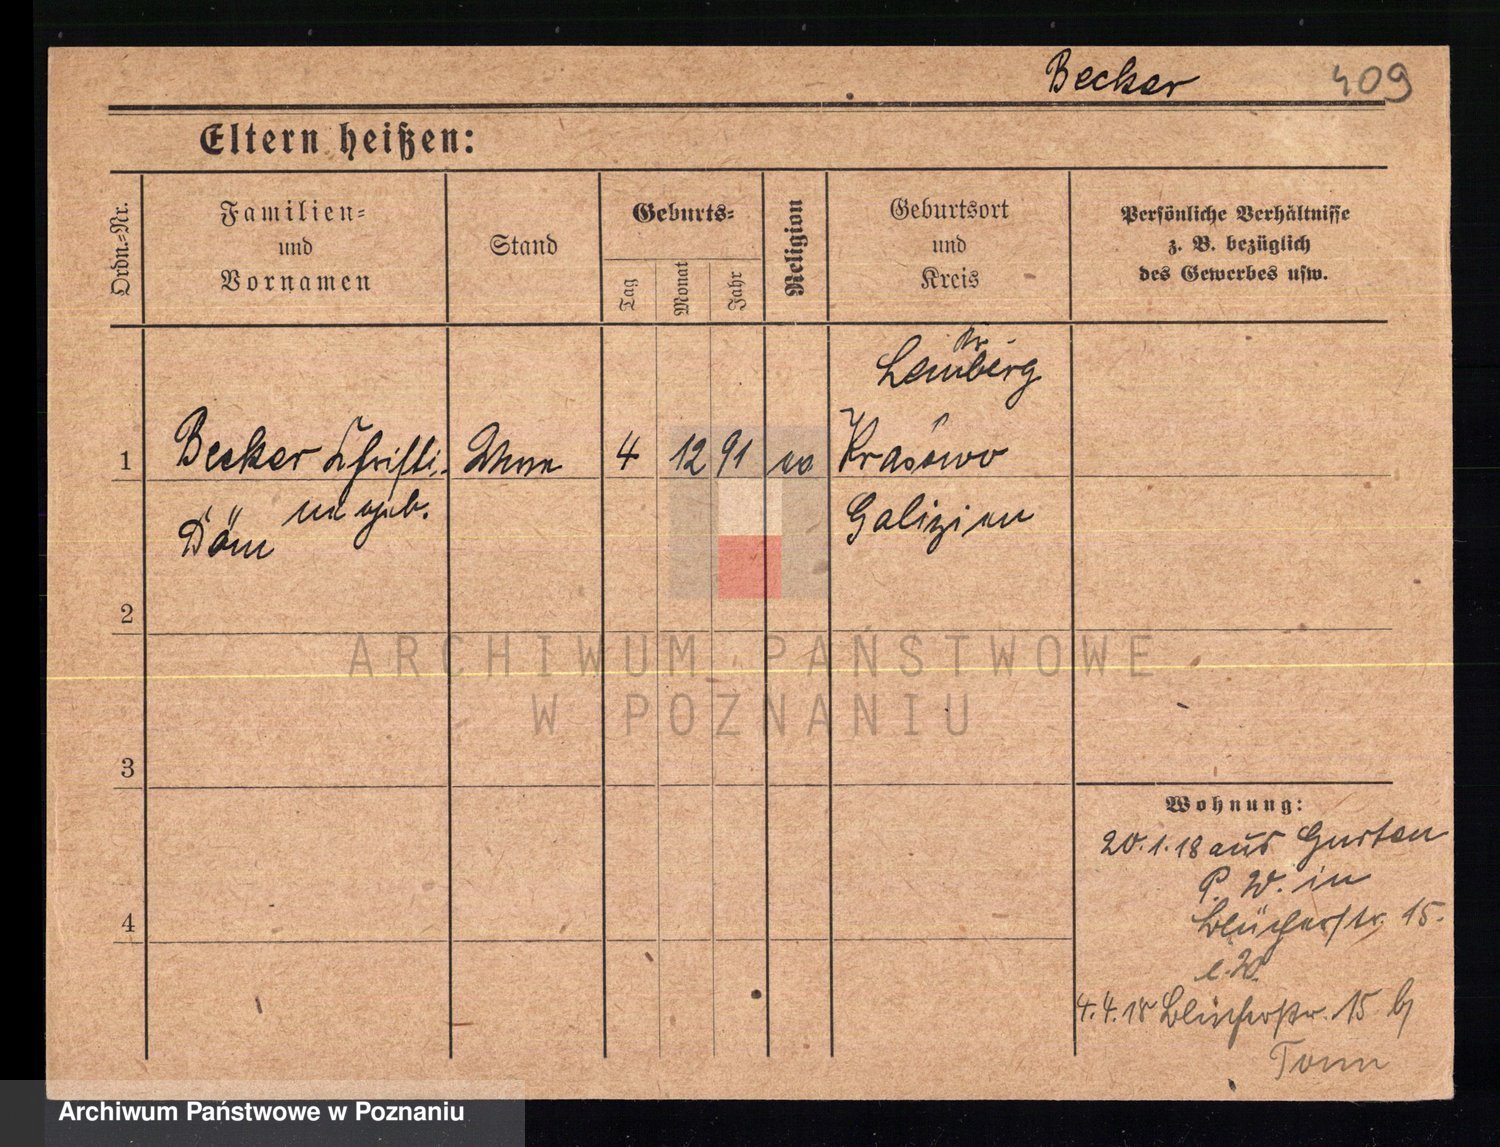 Becker 409
Eltern heißen:
Ordn.-Nr.
Familien-
und
Vornamen
Stand
Geburts-
Tag
Monat
Jahr
Religion
Geburtsort
und
Kreis
Persönliche Verhältnisse
z. B. bezüglich
des Gewerbes usw.
Kr.
Lemberg
1 Becker Christi- 4 12 91 Krasowo
na geb. Galizien
Döm
2
3
4
Wohnung:
20.1.18 aus Gurten
P. W. in
Blücherstr. 15.
4.4.18 Blücherstr. 15 bj
Tomm
ARCHIWUM PAŃSTWOWE
W POZNANIU
Archiwum Państwowe w Poznaniu